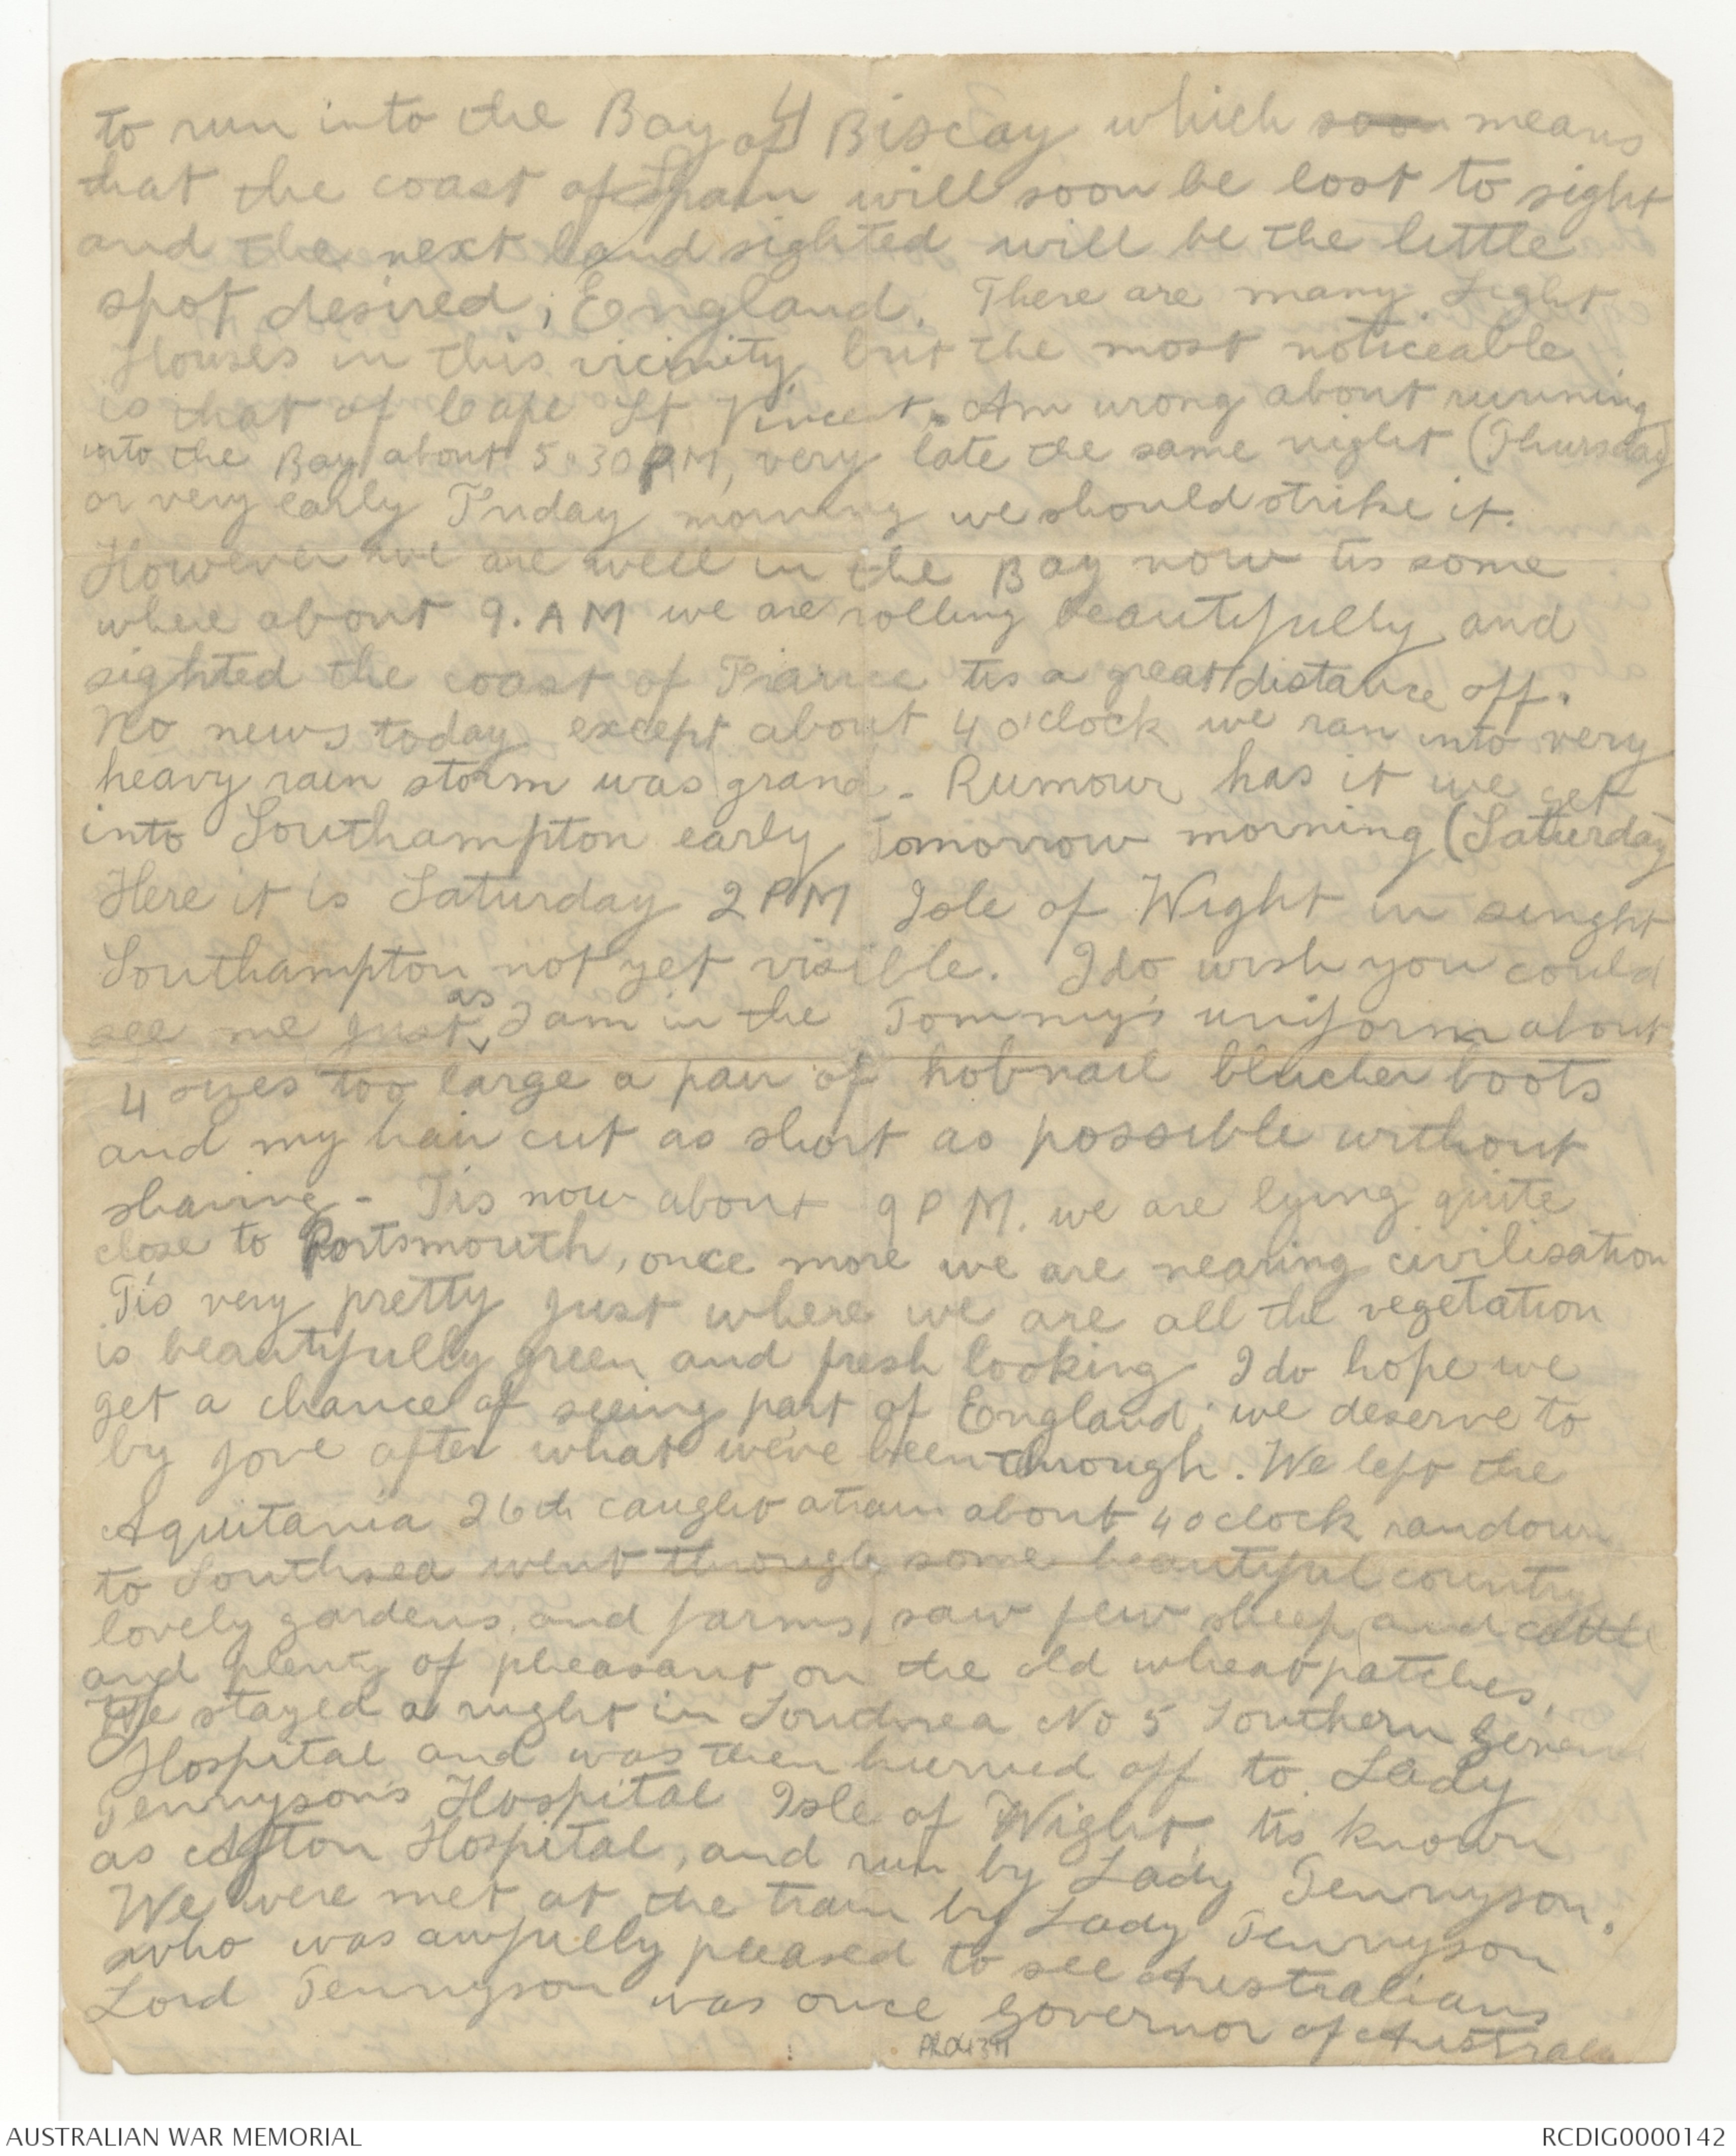 4
to run into the Bay of Biscay which soon means
that the coast of Spain will soon be lost to sight
and the next land sighted will be the little
spot desired, England. There are many Light
Houses in this vicinity but the most noticeable
is that of Cape St Vincent. Am wrong about running
into the Bay about 5.30 PM, very late the same night (Thursday)
or very early Friday morning we should strike it.
However we are well in the Bay now tis some
where about 9. AM we are rolling beautifully and
sighted the coast of France tis a great distance off.
No news today except about 4 o'clock we ran into very
heavy rain storm was grand - Rumour has it we get
into Southampton early Tomorrow morning (Saturday)
Here it is Saturday 2 PM Isle of Wight in singht
Southampton not yet visible. I do wish you could
see me just as I am in the Tommy's uniform about
4 sizes too large a pair of hobnail blucher boots
and my hair cut as short as possible without
shaving - Tis now about 9 PM. we are lying quite
close to Portsmouth, once more we are nearing civilisation
Tis very pretty just where we are all the vegetation
is beautifully green and fresh looking I do hope we
get a chance of seeing part of England; we deserve to
by jove after what we've been through. We left the
Aquitania 26th caught a train about 4 oclock ran down
to Southsea went through some beautiful country
lovely gardens, and farms, saw few sheep, and cattle
and plenty of pheasant on the old wheat patches,
We stayed a night in Southsea No 5 Southern General
Hospital and was then hurried off to Lady
Tennyson's Hospital Isle of Wight, tis known
as Afton Hospital, and run by Lady Tennyson.
We were met at the train by Lady Tennyson
who was awfully pleased to see Australians
Lord Tennyson was once governor of Australia
PR04391
AUSTRALIAN WAR MEMORIAL
RCDIG0000142